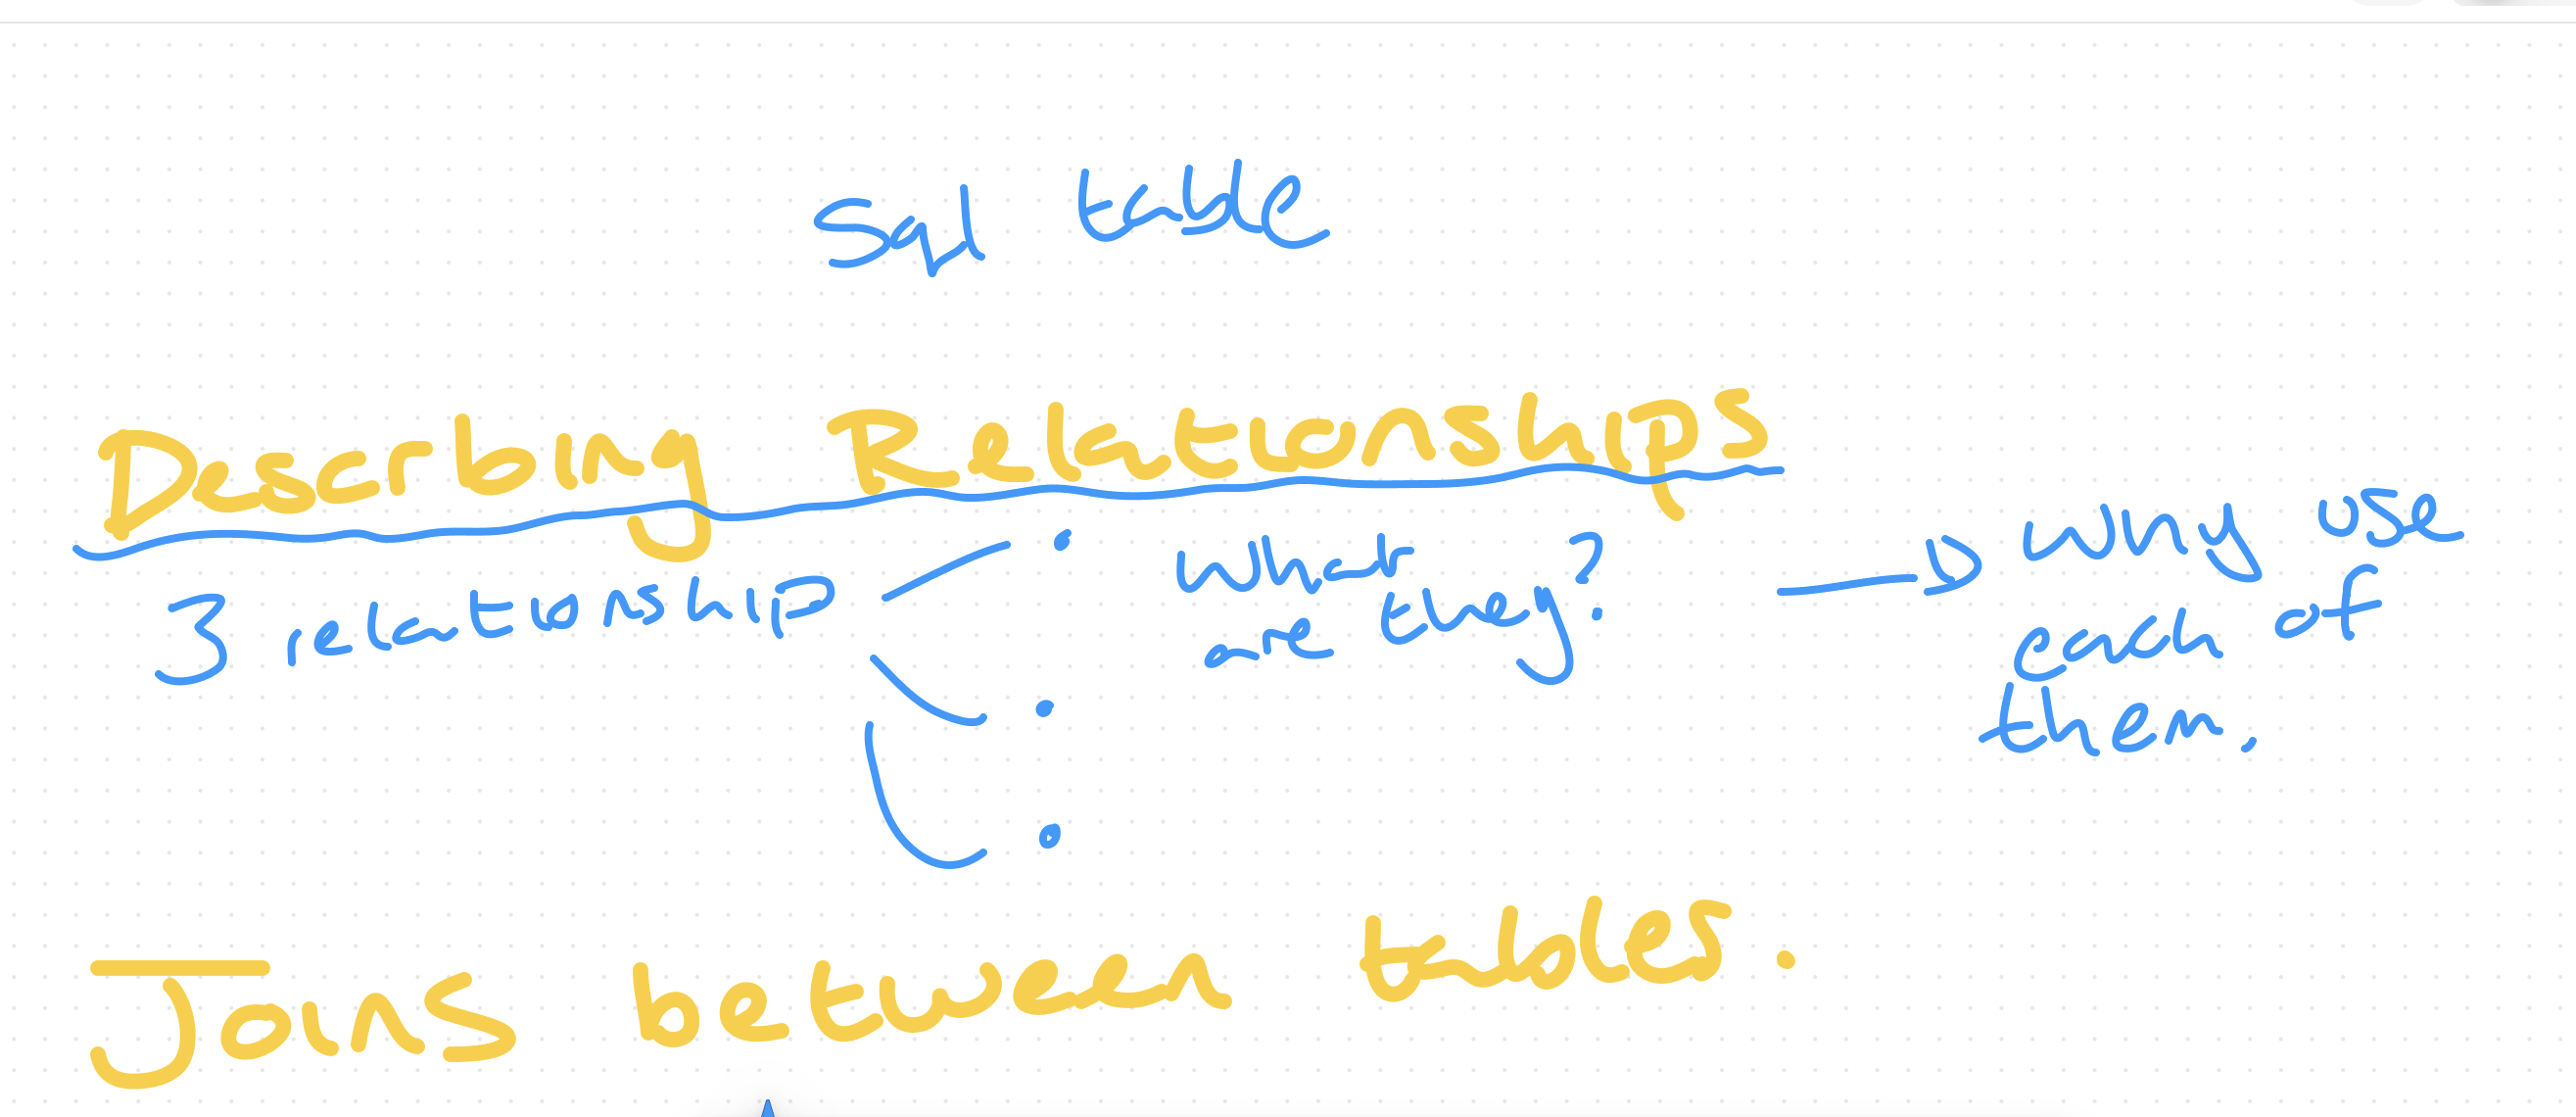 Sql table
Describing Relationships
3 relationship
• What
are they?
•
•
Why use
each of
them.
Joins between tables.